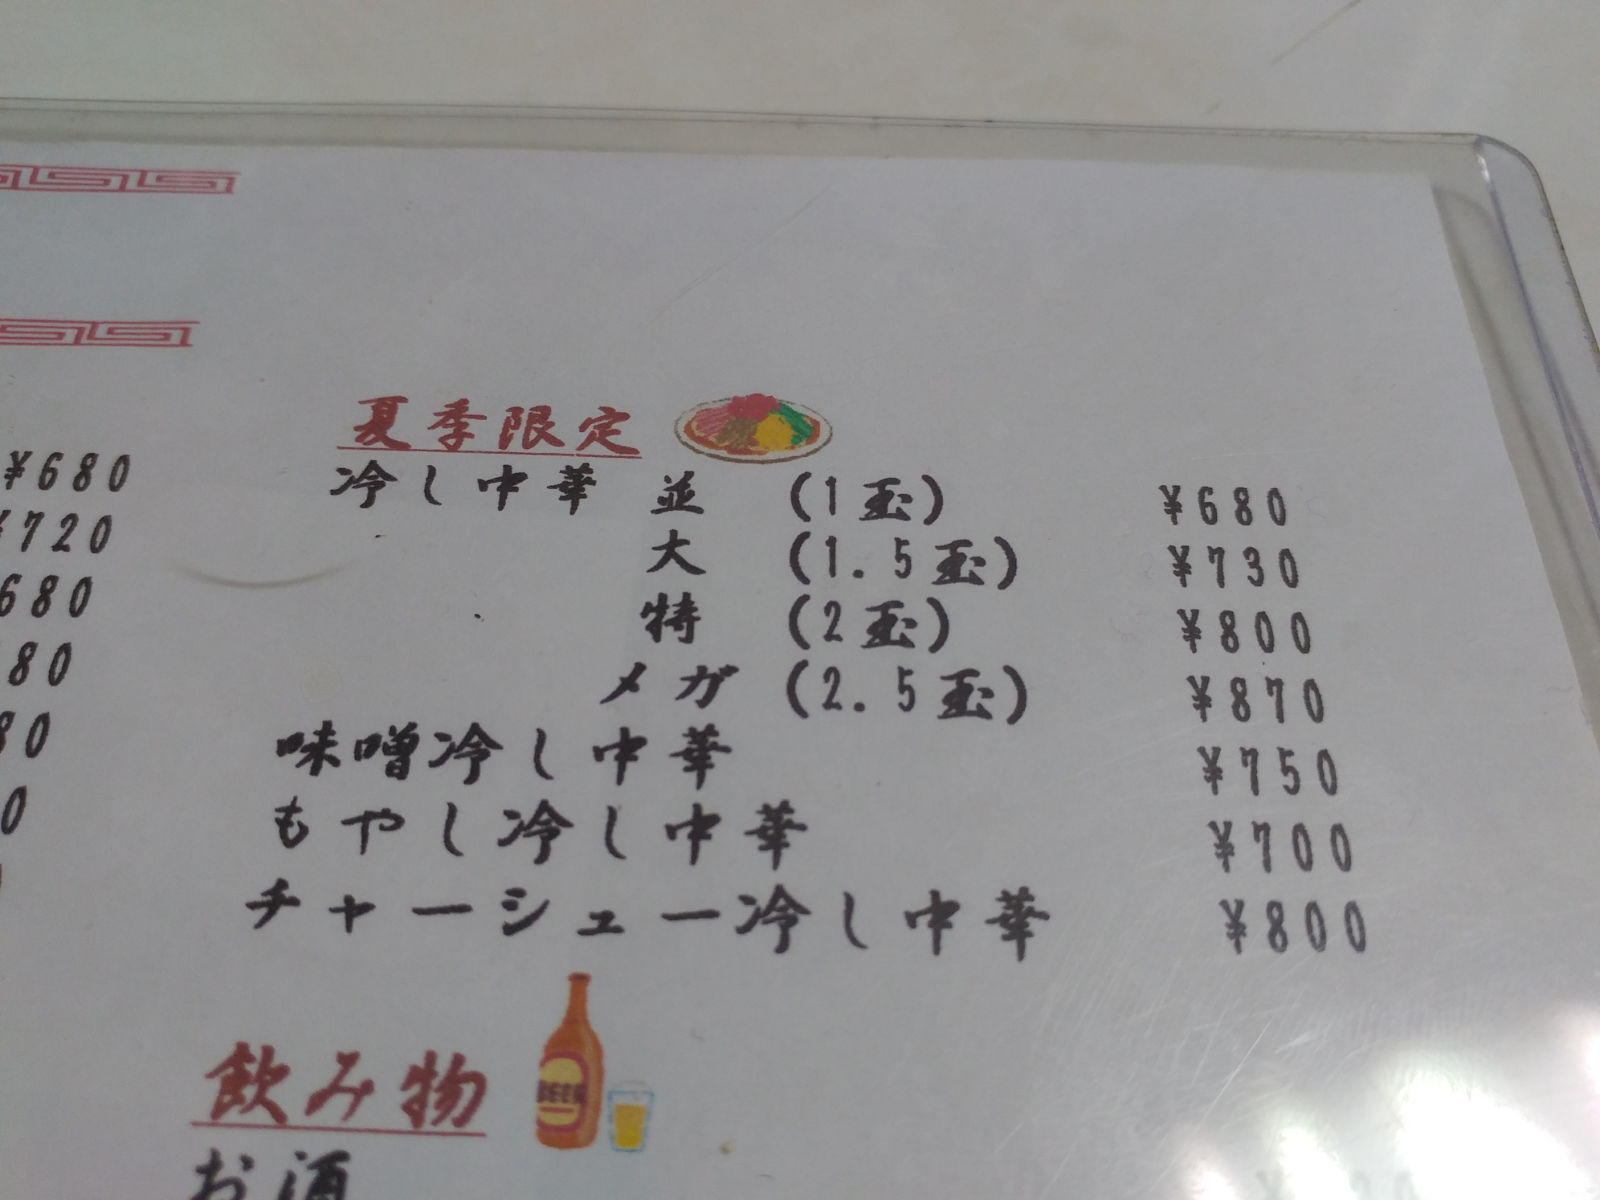 ¥680
¥720
680
80
80
0
夏季限定
冷し中華 並 (1玉) ¥680
大 (1.5玉) ¥730
特 (2玉) ¥800
メガ (2.5玉) ¥870
味噌冷し中華 ¥750
もやし冷し中華 ¥700
チャーシュー冷し中華 ¥800
BEER
飲み物
お酒